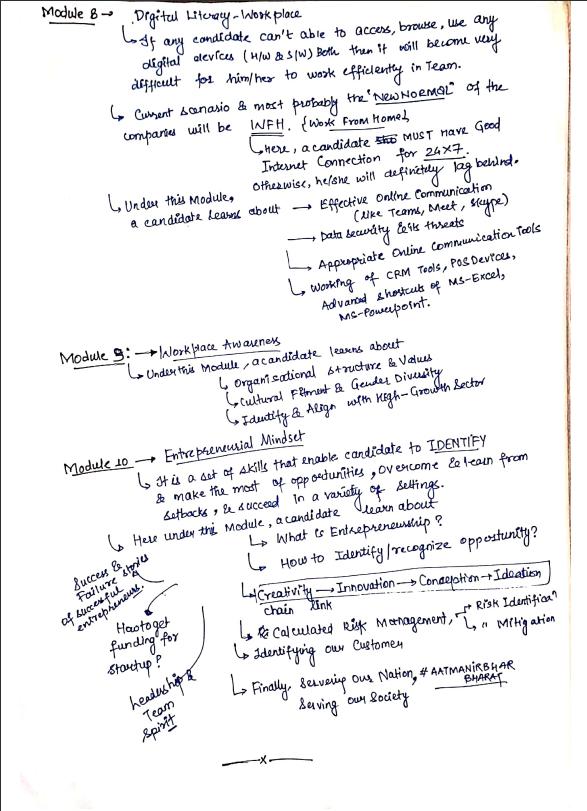 Module 8 → Digital Literacy - Workplace
↳ If any candidate can't able to access, browse, use any
digital devices (H/W & S/W) Both then it will become very
difficult for him/her to work efficiently in Team.
↳ Current scenario & most probably the "NEW NORMAL" of the
companies will be WFH. {Work From Home}
↳ here, a candidate MUST Have Good
Internet Connection for 24x7.
otherwise, he/she will definitely lag behind.
↳ Under this Module,
a candidate learns about → Effective Online Communication
(like Teams, Meet, Skype)
→ Data security & its threats
↳ Appropriate Online Communication Tools
↳ Working of CRM Tools, POS Devices,
Advanced shortcuts of MS-Excel,
MS-Powerpoint.
Module 9: → Workplace Awareness
↳ Under this Module, a candidate learns about
↳ Organisational structure & Values
↳ Cultural Fitment & Gender Diversity
↳ Identify & Align with High-Growth Sector
Module 10 → Entrepreneurial Mindset
↳ It is a set of skills that enable candidate to IDENTIFY
& make the most of opportunities, overcome & learn from
setbacks, & succeed in a variety of settings.
↳ Here under this Module, a candidate learn about
↳ What is Entrepreneurship?
↳ How to Identify/recognize opportunity?
↳ Creativity → Innovation → Conception → Ideation
chain link
↳ Calculated Risk Management, → Risk Identificaⁿ
↳ " Mitigation
↳ Identifying our Customer
↳ Finally, Serving Our Nation, # AATMANIRBHAR
BHARAT
Serving our Society
Success &
Failure stories
of successful
entrepreneurs.
How to get
funding for
startup?
Leadership &
Team
Spirit
—x—